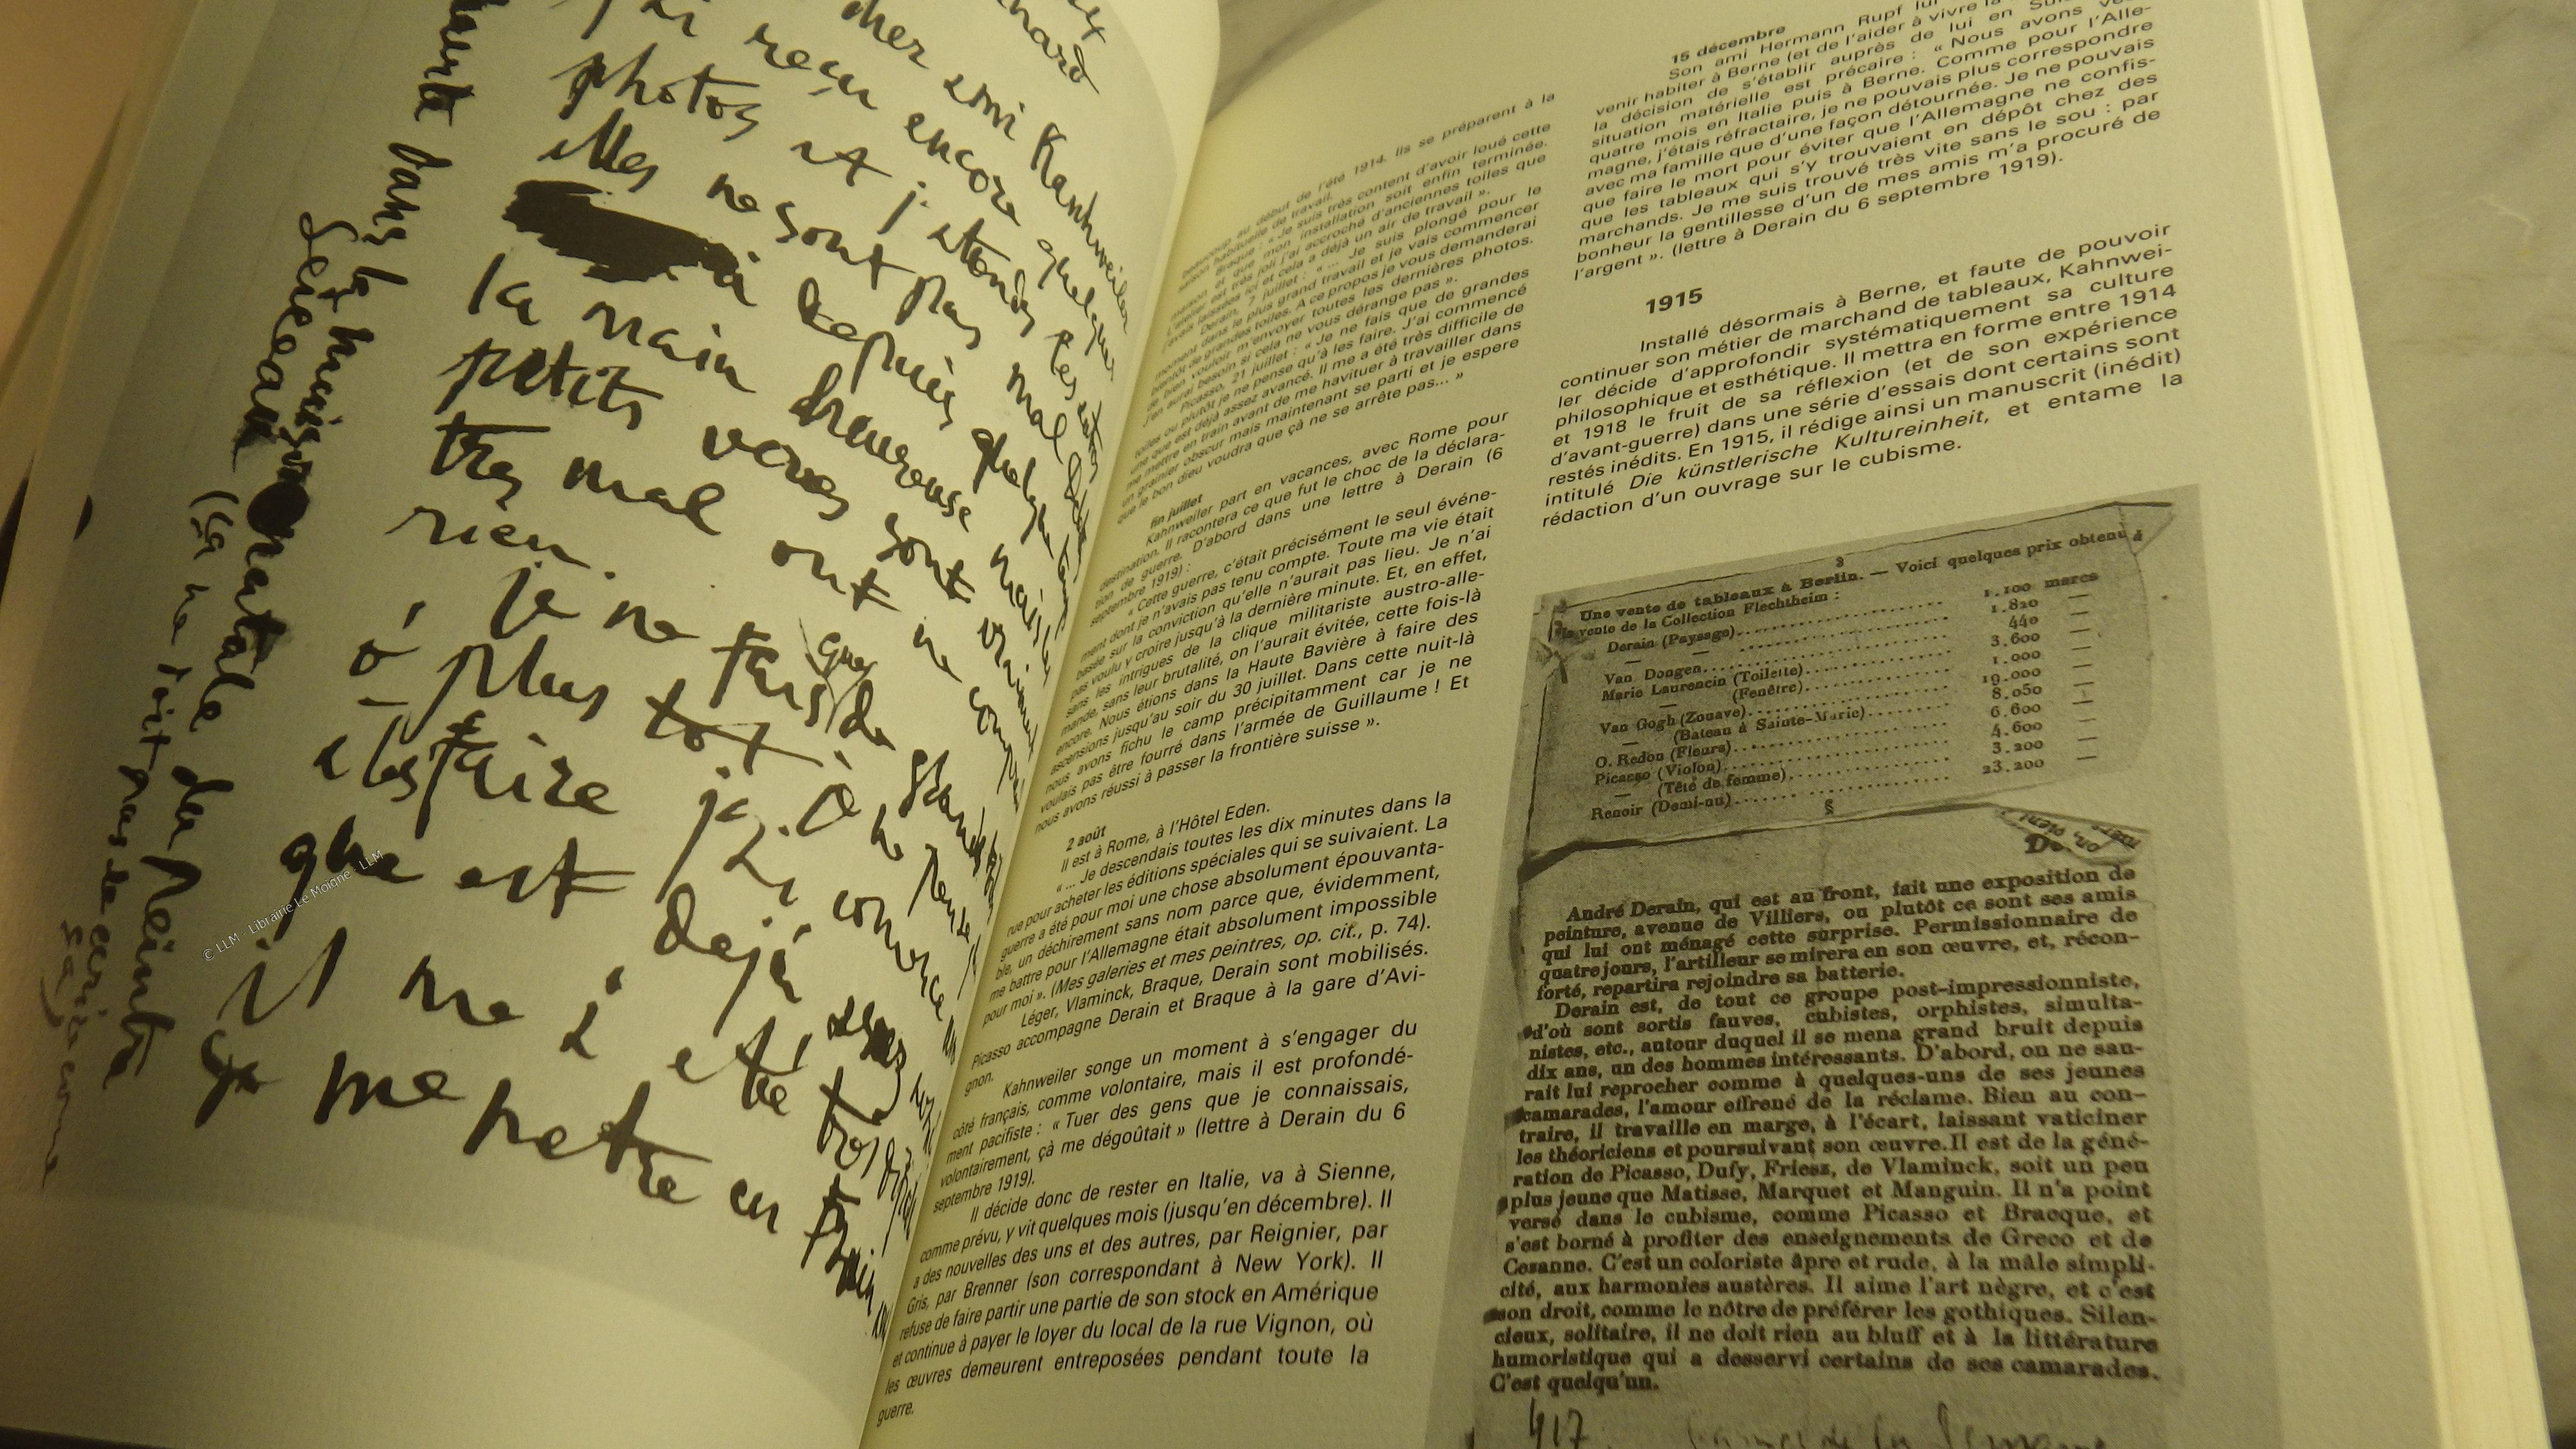 cher ami Kahnweiler
j'ai reçu encore quelques
photos et j'atends
elles ne sont pas mal
depuis quelque temps
la main heureuse mais
petits
tres mal ont
rien.
je ne fais que de grandes
ó plus tot je ne pense
a les faire j'ai comencé
que est dejá
il m'a eté trop
me metre en train
© LLM - Librairie Le Moigne LLM
beaucoup au début de l'été 1914. Ils se préparent à la
saison habituelle de travail.
Braque : « Je suis très content d'avoir loué cette
maison et que mon installation soit enfin terminée.
L'atelier est très joli j'ai accroché d'anciennes toiles que
j'avais laissées ici et cela a déjà un air de travail ».
Derain, 7 juillet : « ... Je suis plongé pour le
moment dans le plus grand travail et je vais commencer
bientôt de grandes toiles. A ce propos je vous demanderai
de bien vouloir m'envoyer toutes les dernières photos.
J'en aurai besoin, si cela ne vous dérange pas ».
Picasso, 21 juillet : « Je ne fais que de grandes
toiles ou plutôt je ne pense qu'à les faire. J'ai commencé
une que est déjà assez avancé. Il me a été très difficile de
me mettre en train avant de me havituer à travailler dans
un grainier obscur mais maintenant se parti et je espere
que le bon dieu voudra que çà ne se arrête pas... »
fin juillet
Kahnweiler part en vacances, avec Rome pour
destination. Il racontera ce que fut le choc de la déclara-
tion de guerre. D'abord dans une lettre à Derain (6
septembre 1919) :
« Cette guerre, c'était précisément le seul événe-
ment dont je n'avais pas tenu compte. Toute ma vie était
basée sur la conviction qu'elle n'aurait pas lieu. Je n'ai
pas voulu y croire jusqu'à la dernière minute. Et, en effet,
sans les intrigues de la clique militariste austro-alle-
mande, sans leur brutalité, on l'aurait évitée, cette fois-là
encore. Nous étions dans la Haute Bavière à faire des
ascensions jusqu'au soir du 30 juillet. Dans cette nuit-là
nous avons fichu le camp précipitamment car je ne
voulais pas être fourré dans l'armée de Guillaume ! Et
nous avons réussi à passer la frontière suisse ».
2 août
Il est à Rome, à l'Hôtel Eden.
« ... Je descendais toutes les dix minutes dans la
rue pour acheter les éditions spéciales qui se suivaient. La
guerre a été pour moi une chose absolument épouvanta-
ble, un déchirement sans nom parce que, évidemment,
me battre pour l'Allemagne était absolument impossible
pour moi ». (Mes galeries et mes peintres, op. cit., p. 74).
Léger, Vlaminck, Braque, Derain sont mobilisés.
Picasso accompagne Derain et Braque à la gare d'Avi-
gnon.
Kahnweiler songe un moment à s'engager du
côté français, comme volontaire, mais il est profondé-
ment pacifiste : « Tuer des gens que je connaissais,
volontairement, çà me dégoûtait » (lettre à Derain du 6
septembre 1919).
Il décide donc de rester en Italie, va à Sienne,
comme prévu, y vit quelques mois (jusqu'en décembre). Il
a des nouvelles des uns et des autres, par Reignier, par
Gris, par Brenner (son correspondant à New York). Il
refuse de faire partir une partie de son stock en Amérique
et continue à payer le loyer du local de la rue Vignon, où
les œuvres demeurent entreposées pendant toute la
guerre.
15 décembre
Son ami Hermann Rupf lui
venir habiter à Berne (et de l'aider à vivre
la décision de s'établir auprès de lui en
situation matérielle est précaire : « Nous avons
quatre mois en Italie puis à Berne. Comme pour l'Alle-
magne, j'étais réfractaire, je ne pouvais plus correspondre
avec ma famille que d'une façon détournée. Je ne pouvais
que faire le mort pour éviter que l'Allemagne ne confis-
que les tableaux qui s'y trouvaient en dépôt chez des
marchands. Je me suis trouvé très vite sans le sou : par
bonheur la gentillesse d'un de mes amis m'a procuré de
l'argent ». (lettre à Derain du 6 septembre 1919).
1915
Installé désormais à Berne, et faute de pouvoir
continuer son métier de marchand de tableaux, Kahnwei-
ler décide d'approfondir systématiquement sa culture
philosophique et esthétique. Il mettra en forme entre 1914
et 1918 le fruit de sa réflexion (et de son expérience
d'avant-guerre) dans une série d'essais dont certains sont
restés inédits. En 1915, il rédige ainsi un manuscrit (inédit)
intitulé Die künstlerische Kultureinheit, et entame la
rédaction d'un ouvrage sur le cubisme.
Une vente de tableaux à Berlin. — Voici quelques prix obtenu à
la vente de la Collection Flechtheim :
Derain (Paysage) 1.100 marcs
— — 1.820 —
Van Dongen 440 —
Marie Laurencin (Toilette) 3.600 —
— (Fenêtre) 1.000 —
Van Gogh (Zouave) 19.000 —
— (Bateau à Sainte-Marie) 8.050 —
O. Redon (Fleurs) 6.600 —
Picasso (Violon) 4.600 —
— (Tête de femme) 3.200 —
Renoir (Demi-nu) 23.200 —
§
André Derain, qui est au front, fait une exposition de
peinture, avenue de Villiers, ou plutôt ce sont ses amis
qui lui ont ménagé cette surprise. Permissionnaire de
quatre jours, l'artilleur se mirera en son œuvre, et, récon-
forté, repartira rejoindre sa batterie.
Derain est, de tout ce groupe post-impressionniste,
d'où sont sortis fauves, cubistes, orphistes, simulta-
nistes, etc., autour duquel il se mena grand bruit depuis
dix ans, un des hommes intéressants. D'abord, on ne sau-
rait lui reprocher comme à quelques-uns de ses jeunes
camarades, l'amour effrené de la réclame. Bien au con-
traire, il travaille en marge, à l'écart, laissant vaticiner
les théoriciens et poursuivant son œuvre. Il est de la géné-
ration de Picasso, Dufy, Friesz, de Vlaminck, soit un peu
plus jeune que Matisse, Marquet et Manguin. Il n'a point
versé dans le cubisme, comme Picasso et Bracque, et
s'est borné à profiter des enseignements de Greco et de
Cesanne. C'est un coloriste âpre et rude, à la mâle simpli-
cité, aux harmonies austères. Il aime l'art nègre, et c'est
son droit, comme le nôtre de préférer les gothiques. Silen-
cieux, solitaire, il ne doit rien au bluff et à la littérature
humoristique qui a desservi certains de ses camarades.
C'est quelqu'un.